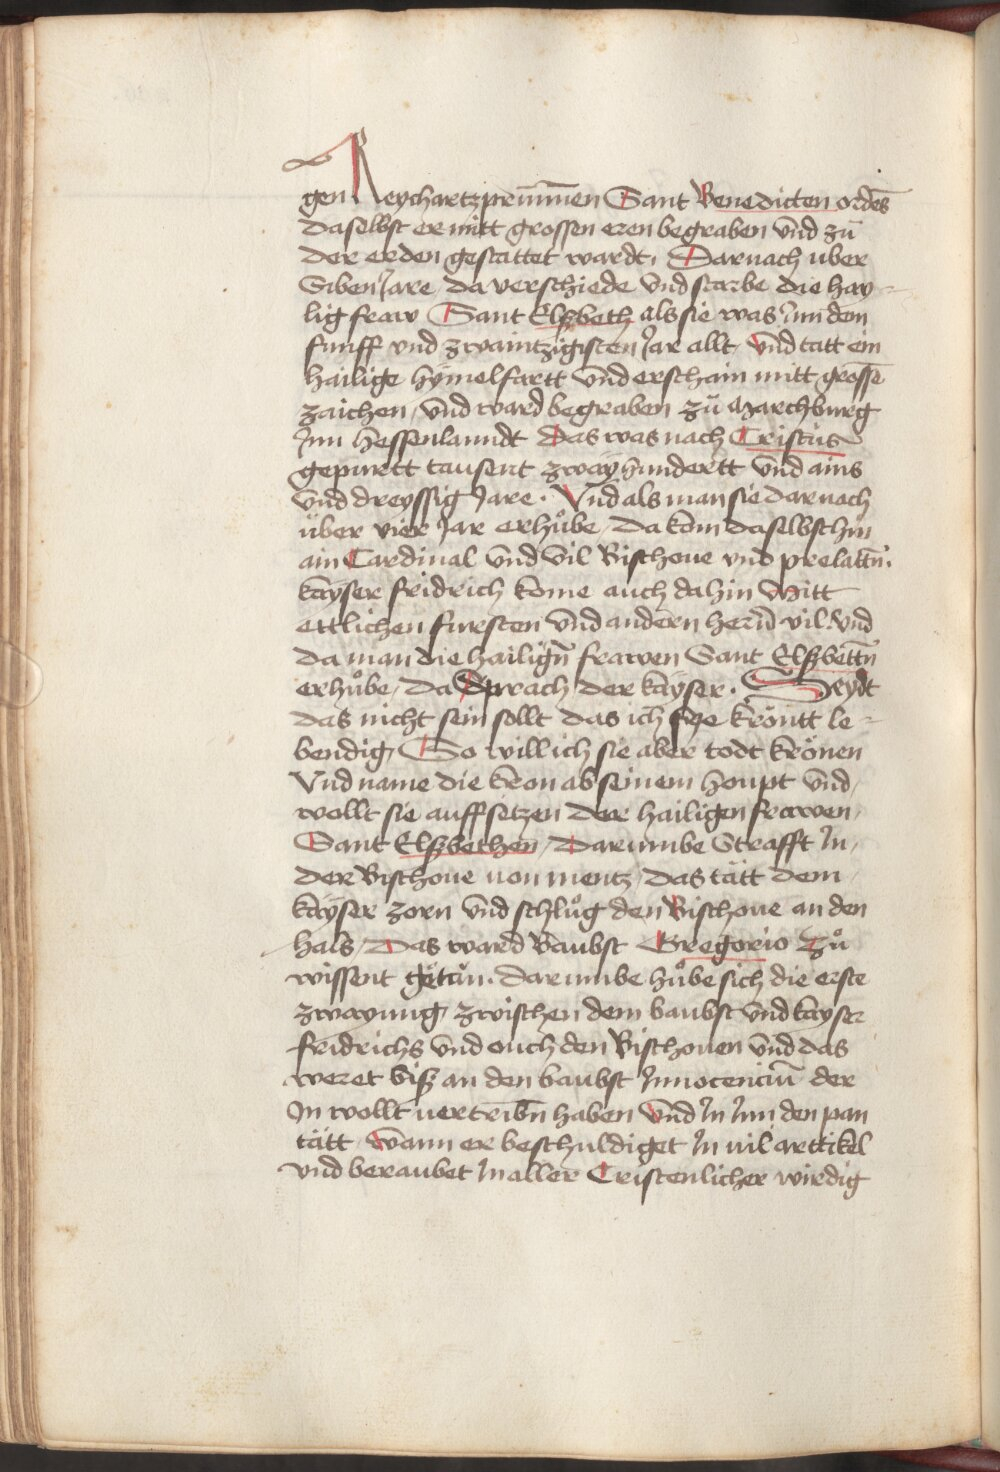 gen Reychartzprunnen Sant Benedicten ordēs
daselbst er mitt grossen eren begraben vnd zů
der erden gestattet wardt. Darnach uber
Siben Jare da verschiede vnd starbe die hay-
lig fraw Sant Elßbeth als sie was Jnn dem
funff vnd zwaintzigisten Jar allt vnd tatt ein
hailige hymelfartt vnd erschain mitt grossē
zaichen, vnd ward begraben zů Marchburg
Jnn hessenlanndt Das was nach Cristus
gepurtt tausent zway hundertt vnd ains
vnd dreyssig Jare. Vnd als man sie darnach
über vier Jar erhůbe, da kom daselbsthin
ain Cardinal vnd vil Bischoue vnd prelattn̄.
kayser fridrich kome auch dahin Mitt
ettlichen fursten vnd andern hern̄ vil. vnd
da man die hailign̄ frawen Sant Elßbettn̄
erhůbe, da Sprach der kayser. Seydt
das nicht sein sollt das ich sye krönitt le-
bendig, So will ich sie aber todt krönen
Vnd name die kron ab seinem houpt vnd
wollt sie auffsetzen der hailigen frawen,
Sant Elßbethen, Darumbe Strafft In,
der Bischoue uon mentz, das tätt dem
kayser zorn vnd schlůg den Bischoue an den
hals, Das ward Baubst Gregorio Zů
wissent getän. darumbe hůbe sich die erste
zwayung, zwischen dem baubst vnd kayser
fridrichs vnd ouch den Bischouen vnd das
weret biß an den baubst Jnnocenciū der
In wollt uertribn̄ haben vnd In Jnn den pan
tätt, wann er beschuldiget In uil arttikel
vnd beraubet In aller Cristenlicher wirdig